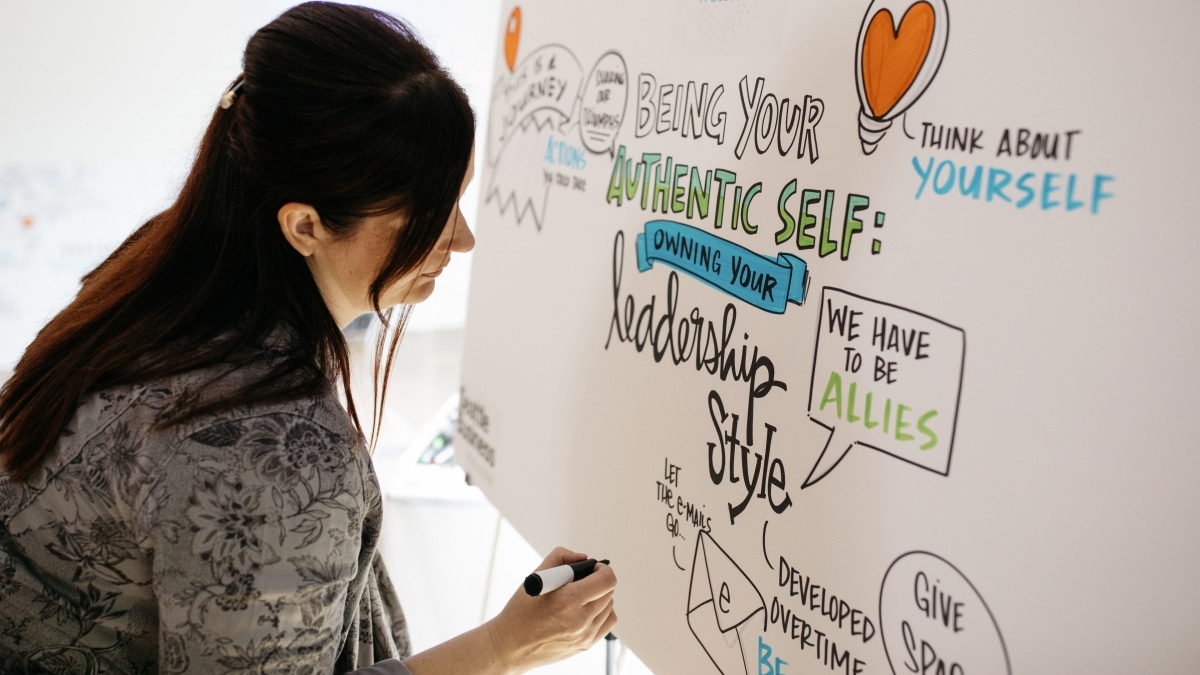 IS A
JOURNEY
SHARING
OUR
TRIUMPHS
ACTIONS
YOU COULD TAKE
BEING YOUR
AUTHENTIC SELF:
OWNING YOUR
leadership
Style
THINK ABOUT
YOURSELF
WE HAVE
TO BE
ALLIES
Seattle
Business
LET
THE E-MAILS
GO...
e
DEVELOPED
OVERTIME
BE
GIVE